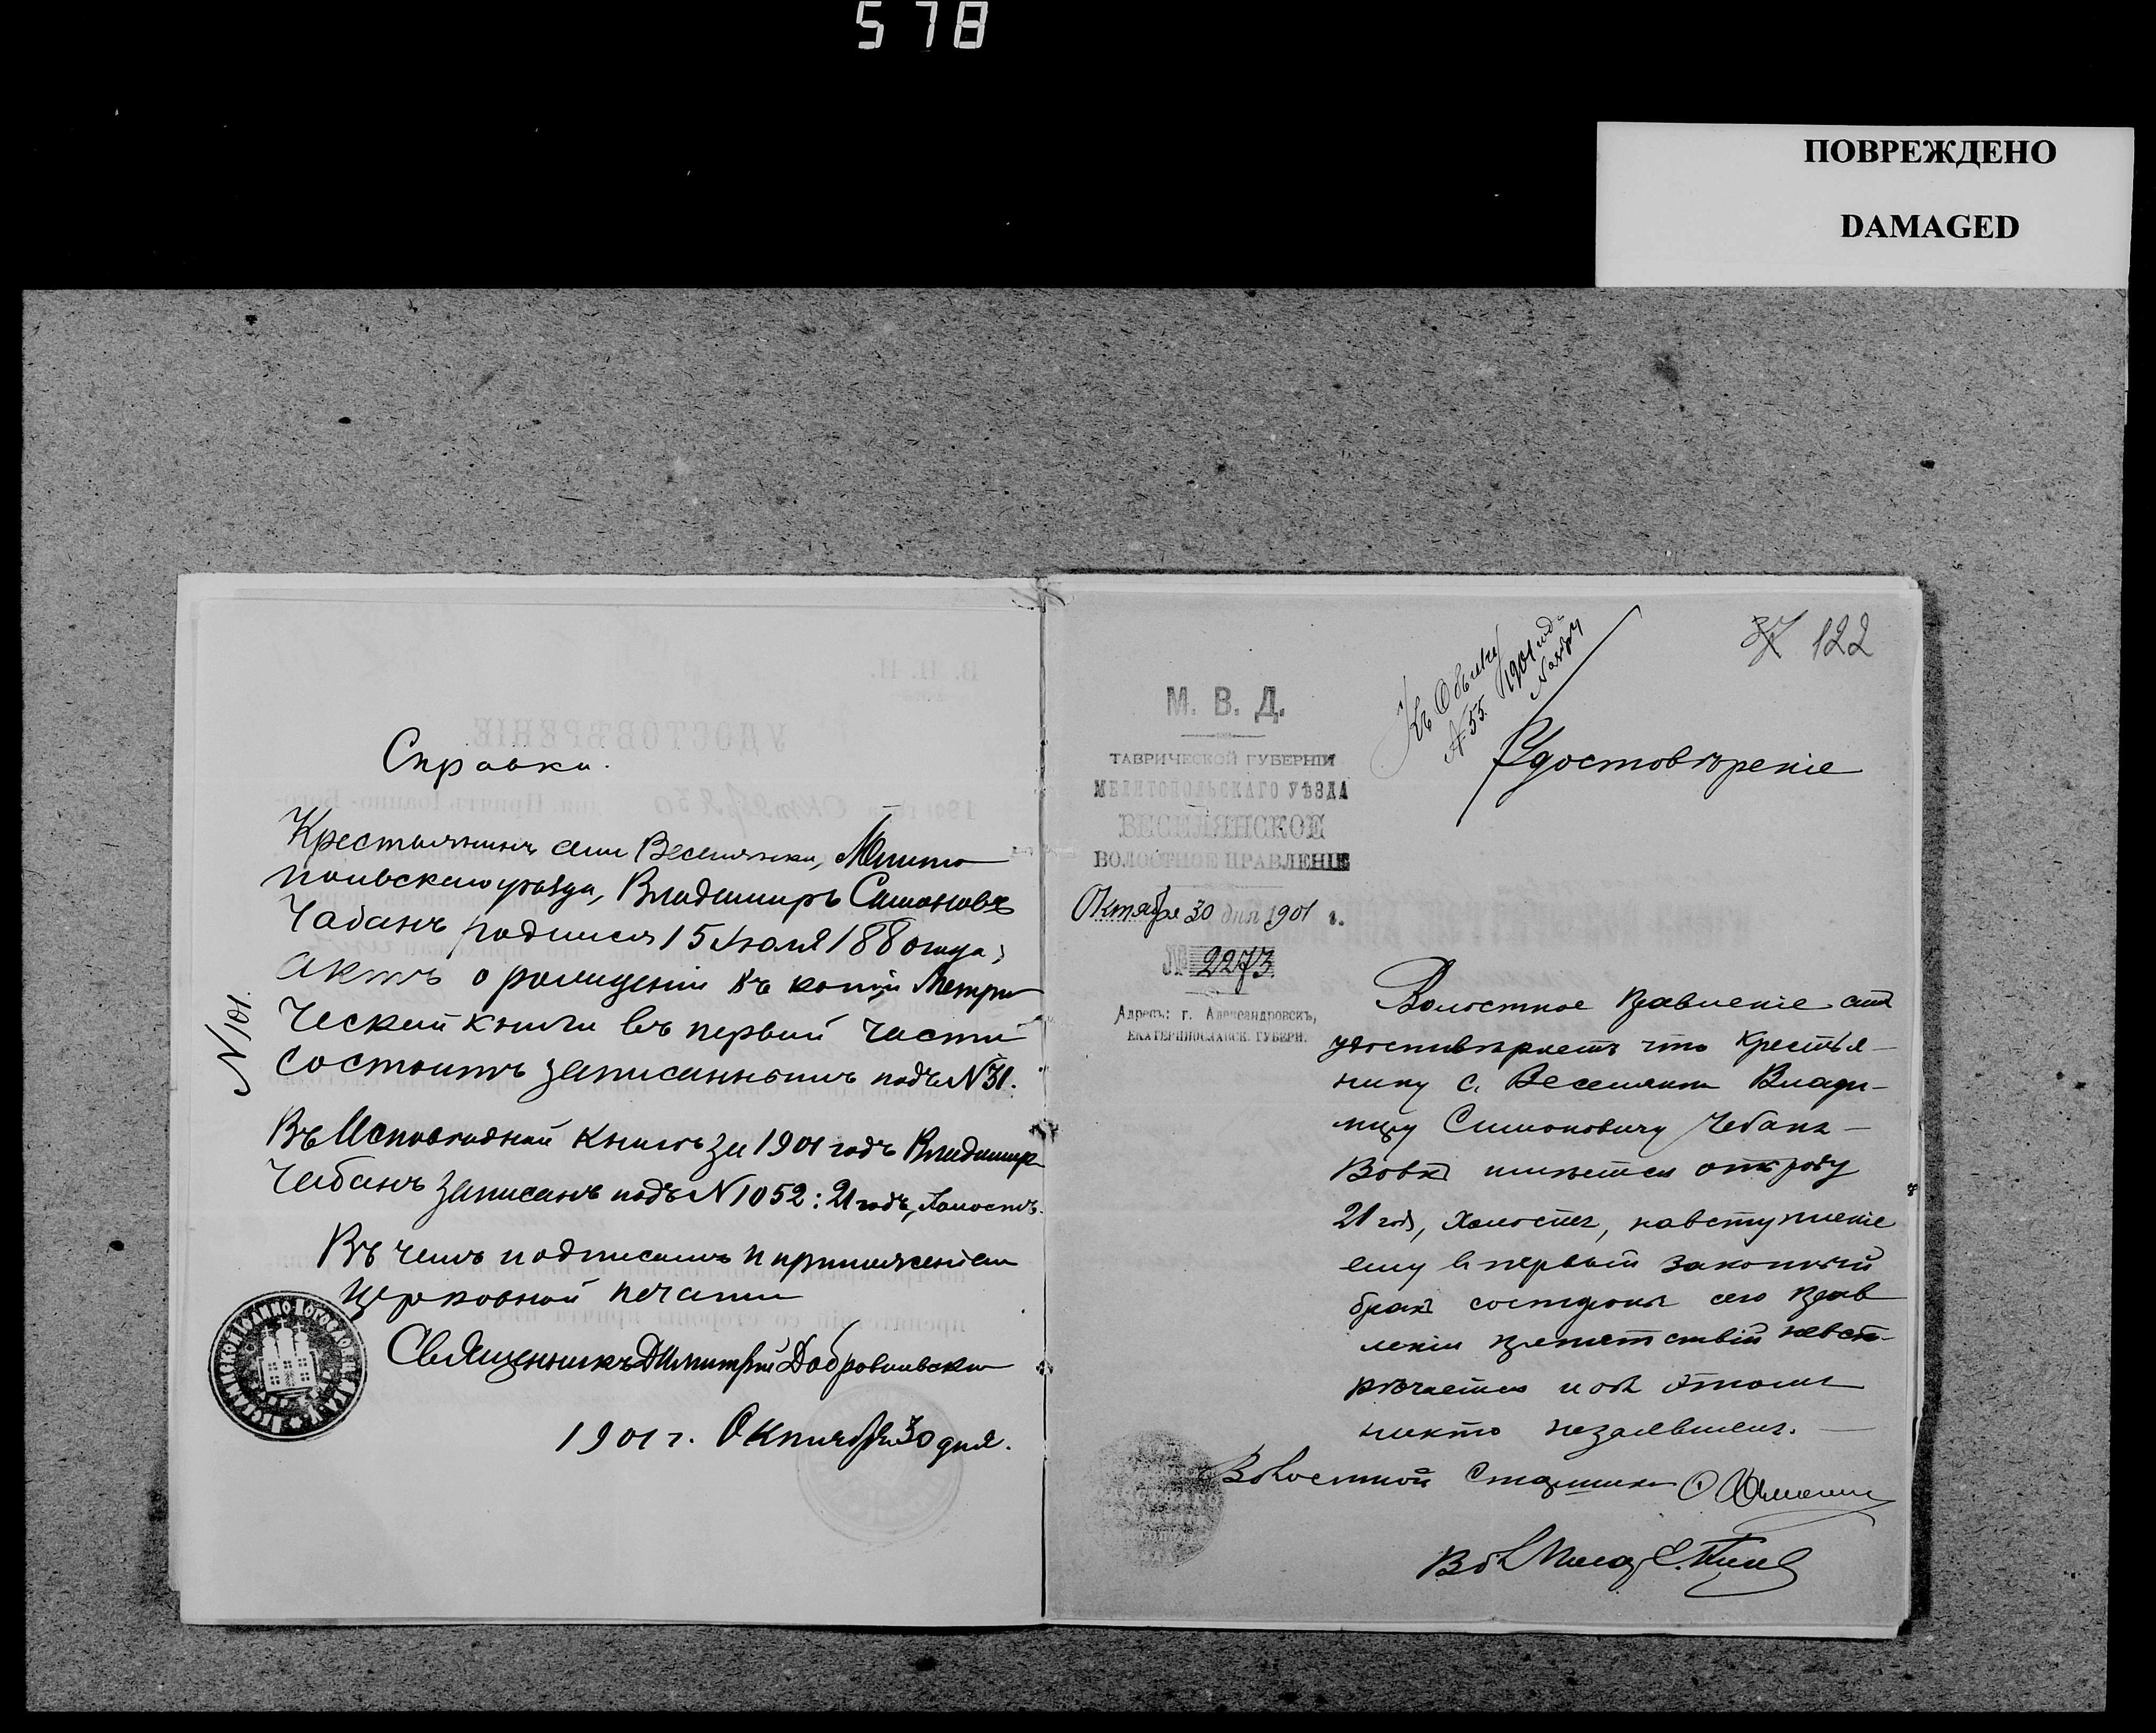 578
ПОВРЕЖДЕНО
DAMAGED
Справка.
Крестьянинъ села Веселянки, Мелито
польскаго уѣзда, Владимиръ Симоновъ
Чабанъ родился 15 Іюля 1880 года;
актъ о рожденіи въ копіи Метри
ческой книги въ первой части
состоитъ записаннымъ подъ № 31.
№ 101.
Въ Исповѣдной книгѣ за 1901 годъ Владимиръ
Чабанъ записанъ подъ № 1052: 21 годъ, холостъ.
Въ чемъ подписомъ и приложеніемъ
церковной печати
Священникъ Димитрій Добровольскій
1901 г. Октября 30 дня.
122
Къ Обыску
№ 55. 1901 года
Ноября
М. В. Д.
ТАВРИЧЕСКОЙ ГУБЕРНІИ
МЕЛИТОПОЛЬСКАГО УѢЗДА
ВЕСЕЛЯНСКОЕ
ВОЛОСТНОЕ ПРАВЛЕНІЕ
Октября 30 дня 1901 г.
№ 2273.
Адресъ: г. Александровскъ,
ЕКАТЕРИНОСЛАВСК. ГУБЕРН.
Удостовѣреніе
Волостное Правленіе симъ
удостовѣряетъ что крестья-
нину с. Веселянки Влади-
миру Симоновичу Чабану-
Вовкъ имѣется отъ роду
21 годъ, холостъ, на вступленіе
ему въ первый законный
бракъ со стороны сего Прав
ленія препятствій не вст-
рѣчается и объ этомъ
никто не заявлялъ.
Волостной Старшина
Вол. Писарь